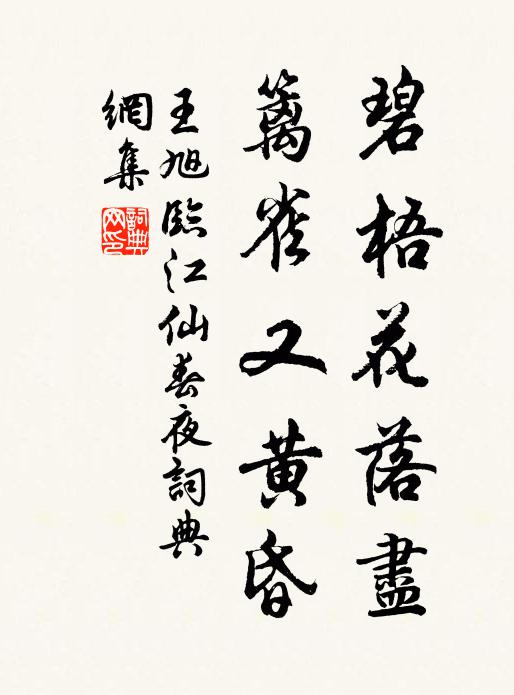 碧梧花落盡
籬雀又黃昏
王旭臨江仙春夜詞典
網集
詞典
网印